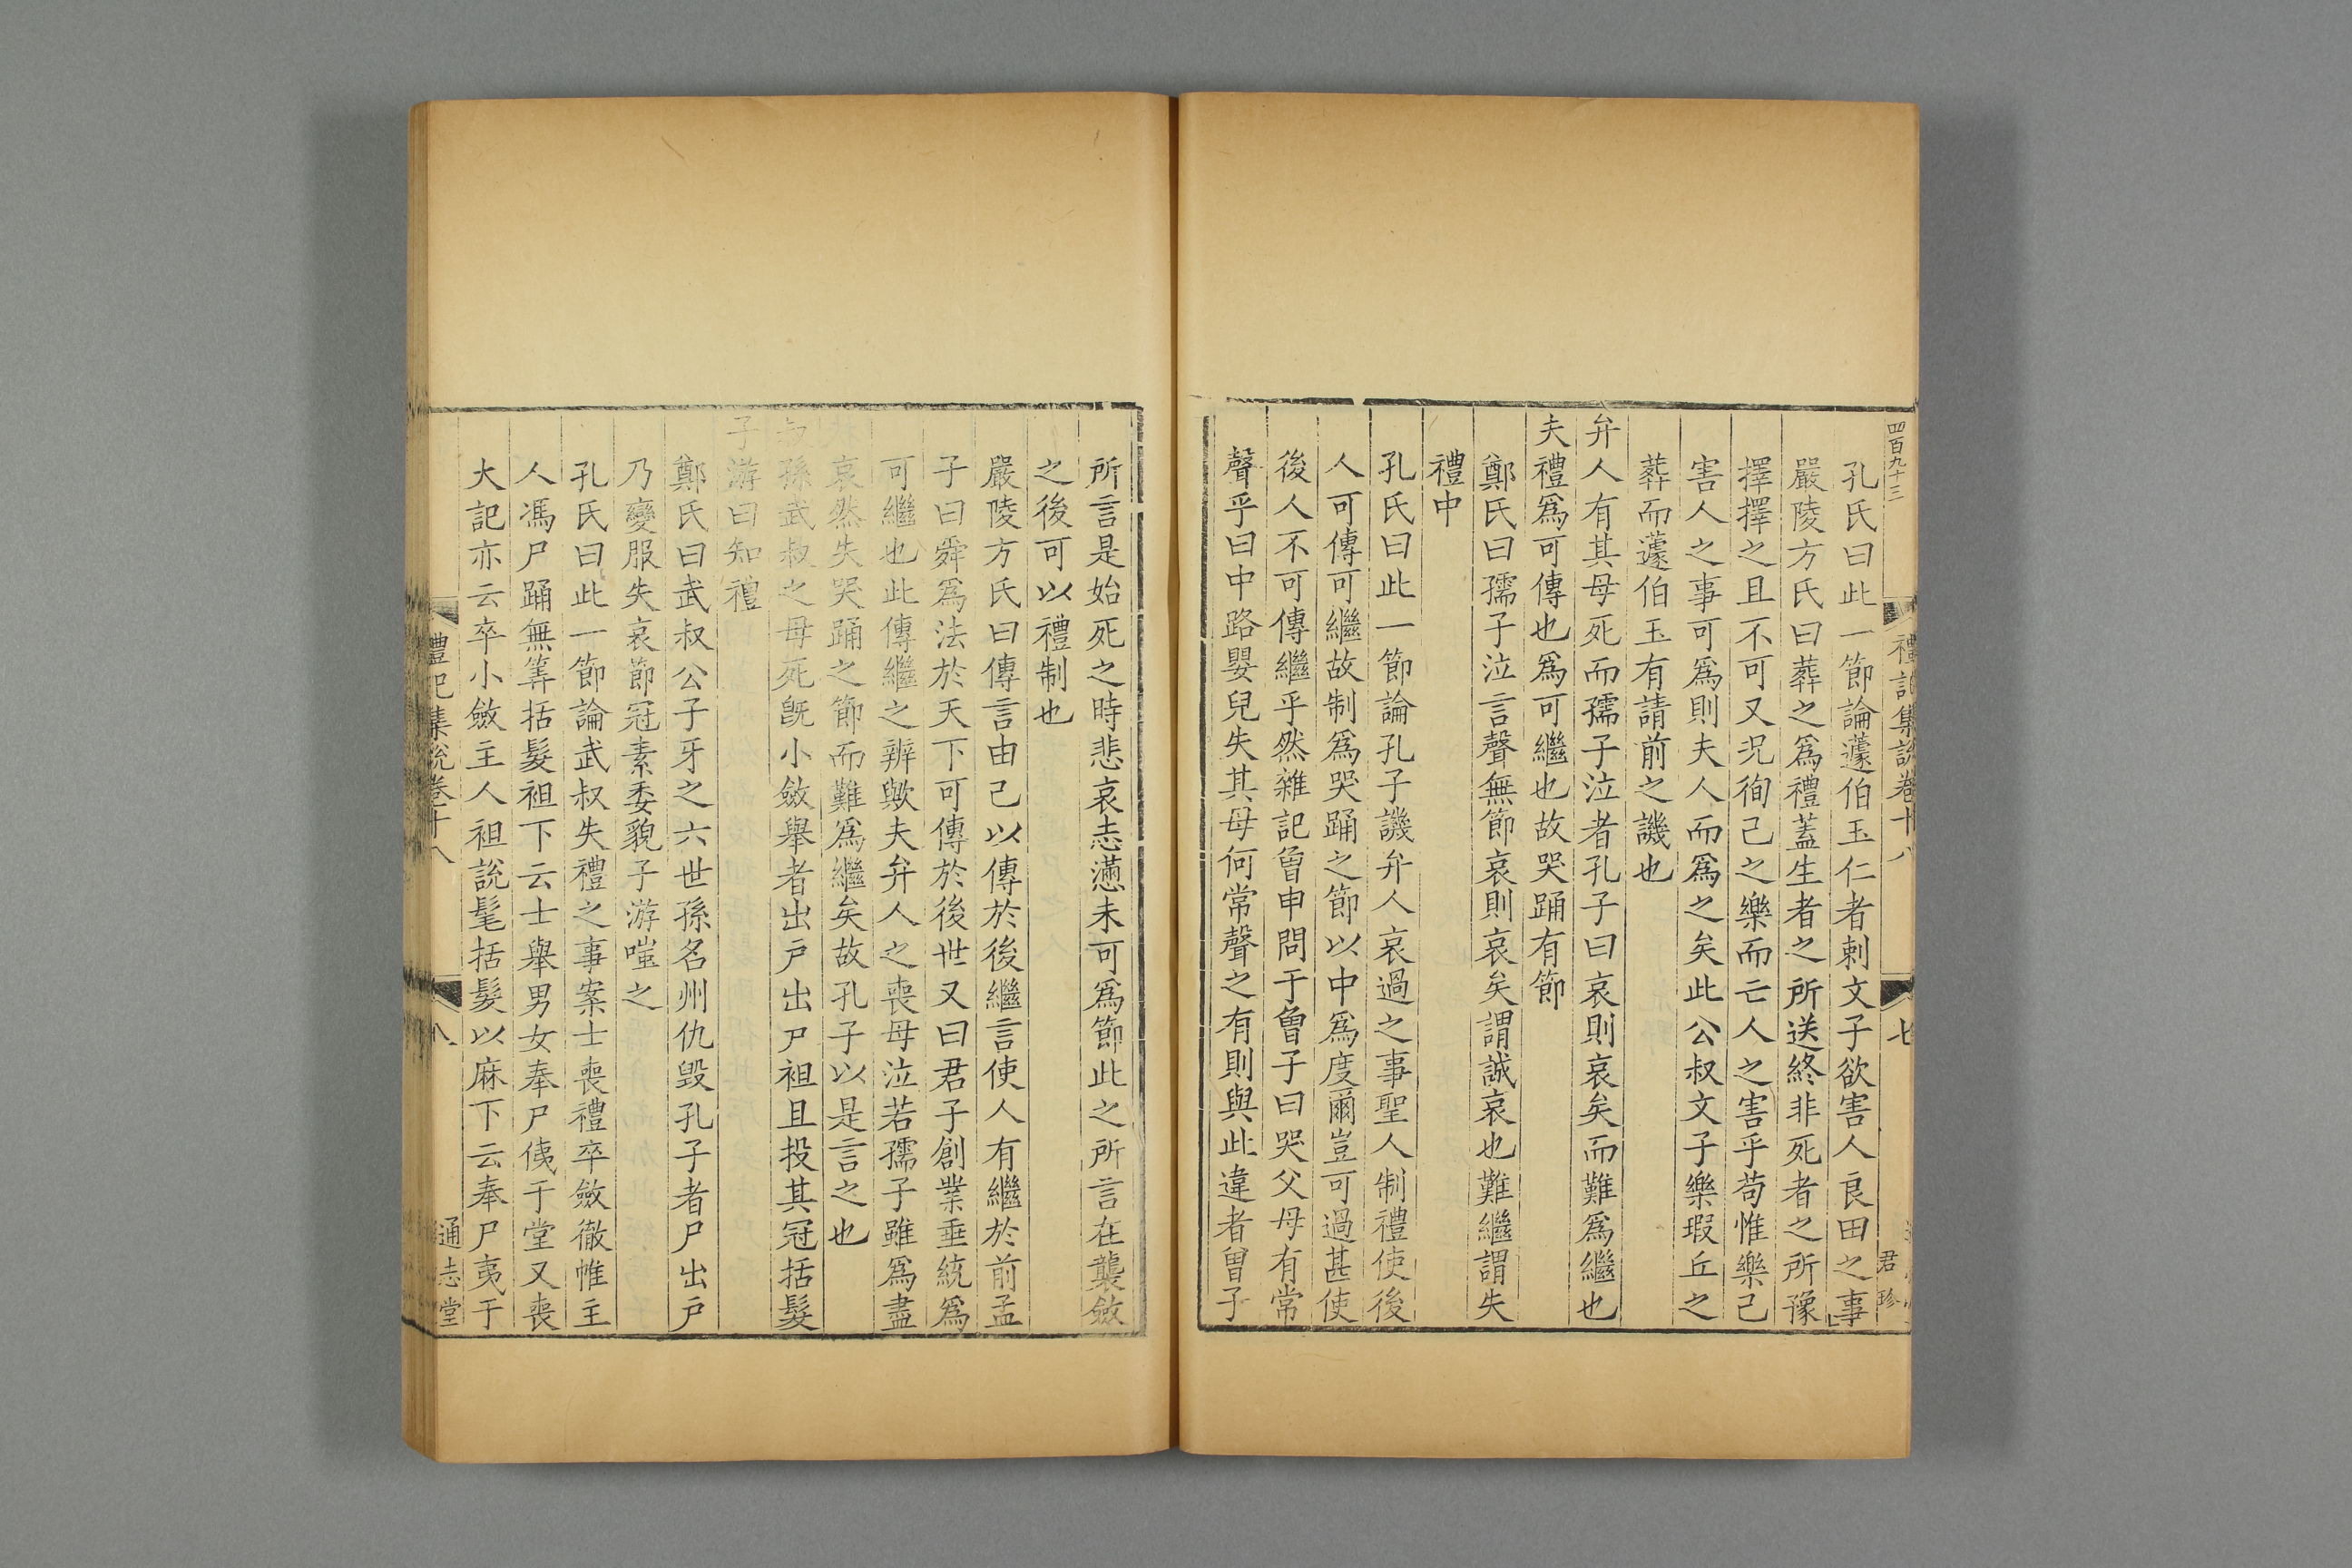 四百九十三
禮記集說卷十八
七
君珍
孔氏曰此一節論蘧伯玉仁者刺文子欲害人良田之事
嚴陵方氏曰葬之爲禮蓋生者之所送終非死者之所豫
擇擇之且不可又况徇己之樂而亡人之害乎苟惟樂己
害人之事可爲則夫人而爲之矣此公叔文子樂瑕丘之
葬而蘧伯玉有請前之譏也
弁人有其母死而孺子泣者孔子曰哀則哀矣而難爲繼也
夫禮爲可傳也爲可繼也故哭踊有節
鄭氏曰孺子泣言聲無節哀則哀矣謂誠哀也難繼謂失
禮中
孔氏曰此一節論孔子譏弁人哀過之事聖人制禮使後
人可傳可繼故制爲哭踊之節以中爲度爾豈可過甚使
後人不可傳繼乎然雜記曾申問于曾子曰哭父母有常
聲乎曰中路嬰兒失其母何常聲之有則與此違者曾子
所言是始死之時悲哀志懣未可爲節此之所言在襲斂
之後可以禮制也
嚴陵方氏曰傳言由己以傳於後繼言使人有繼於前孟
子曰舜爲法於天下可傳於後世又曰君子創業垂統爲
可繼也此傳繼之辨歟夫弁人之喪母泣若孺子雖爲盡
哀然失哭踊之節而難爲繼矣故孔子以是言之也
叔孫武叔之母死旣小斂舉者出戶出尸袒且投其冠括髮
子游曰知禮
鄭氏曰武叔公子牙之六世孫名州仇毀孔子者尸出戶
乃變服失哀節冠素委貌子游嗤之
孔氏曰此一節論武叔失禮之事案士喪禮卒斂徹帷主
人馮尸踊無筭括髮袒下云士舉男女奉尸侇于堂又喪
大記亦云卒小斂主人袒說髦括髮以麻下云奉尸夷于
禮記集說卷十八
八
通志堂